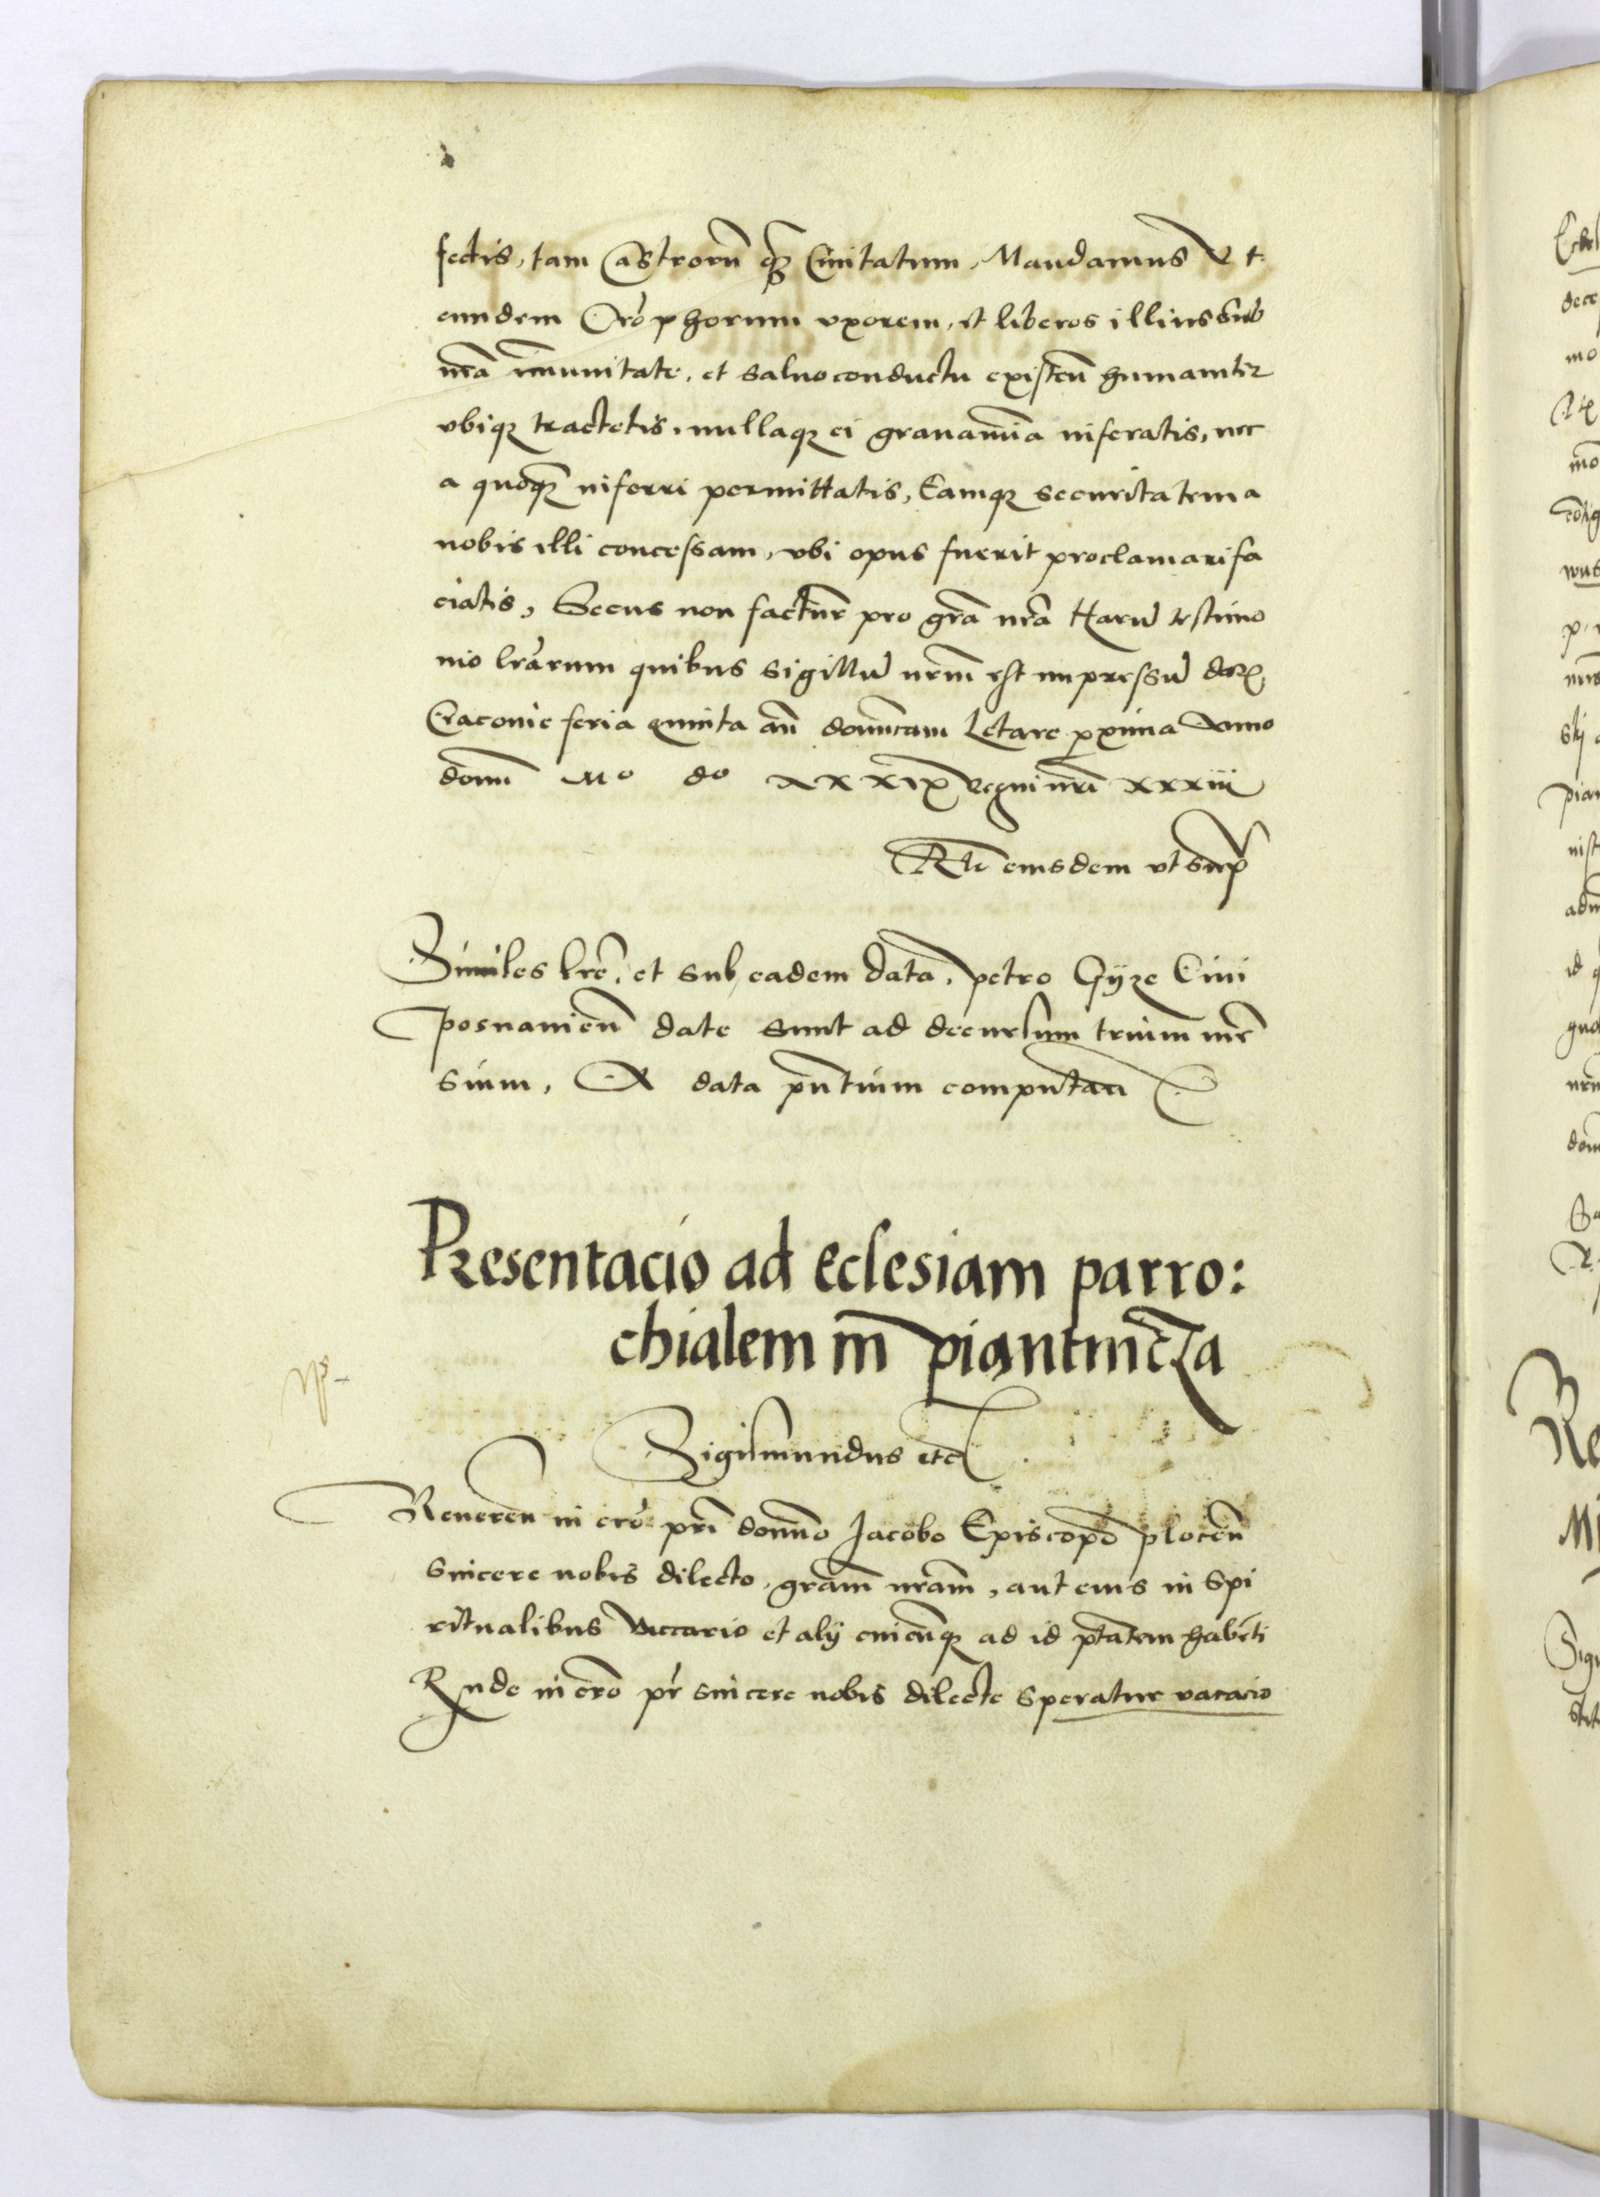 fectis, tam Castrorũ q̃ Civitatum, Mandamus Vt
eundem Orophorum vxorem, et liberos illius sub
nr̃a im̃unitate, et salvoconductu existeñ humaniter
vbiq̨ tractetis, nullaq̨ ei gravamĩa inferatis, nec
a quoq̃ inferri permittatis, Eamq̨ securitatem a
nobis illi concessam, vbi opus fuerit proclamari fa
ciatis, Secus non factur̃ pro gr̃a nr̃a Harũ testimo
nio lr̃arum quibus sigillũ nr̃m est impressũ dat̃
Cracovie feria quinta añ domĩcam Letare pxima Anno
domĩ Mo do XXXIX Regni nr̃i XXXiii
Rtĩ eiusdem vt sup̃
Similes lr̃e, et sub eadem data, petro Gyze Civi
posnanieñ date sunt ad decursum trium mẽ
sium, A data pñtium computañ
Presentacio ad eclesiam parro:
chialem in piantnicza
Sigismundus etc̃
Revereñ in cr̃o pr̃i domĩno Jacobo Episcopo ploceñ
sincere nobis dilecto, gr̃am nr̃am, aut eius in Spi
ritualibus Viccario et alij cuicũq̨ ad id ptãtem habẽti
Rnde in cr̃o pr̃ sincere nobis dilecte speratur vacacio